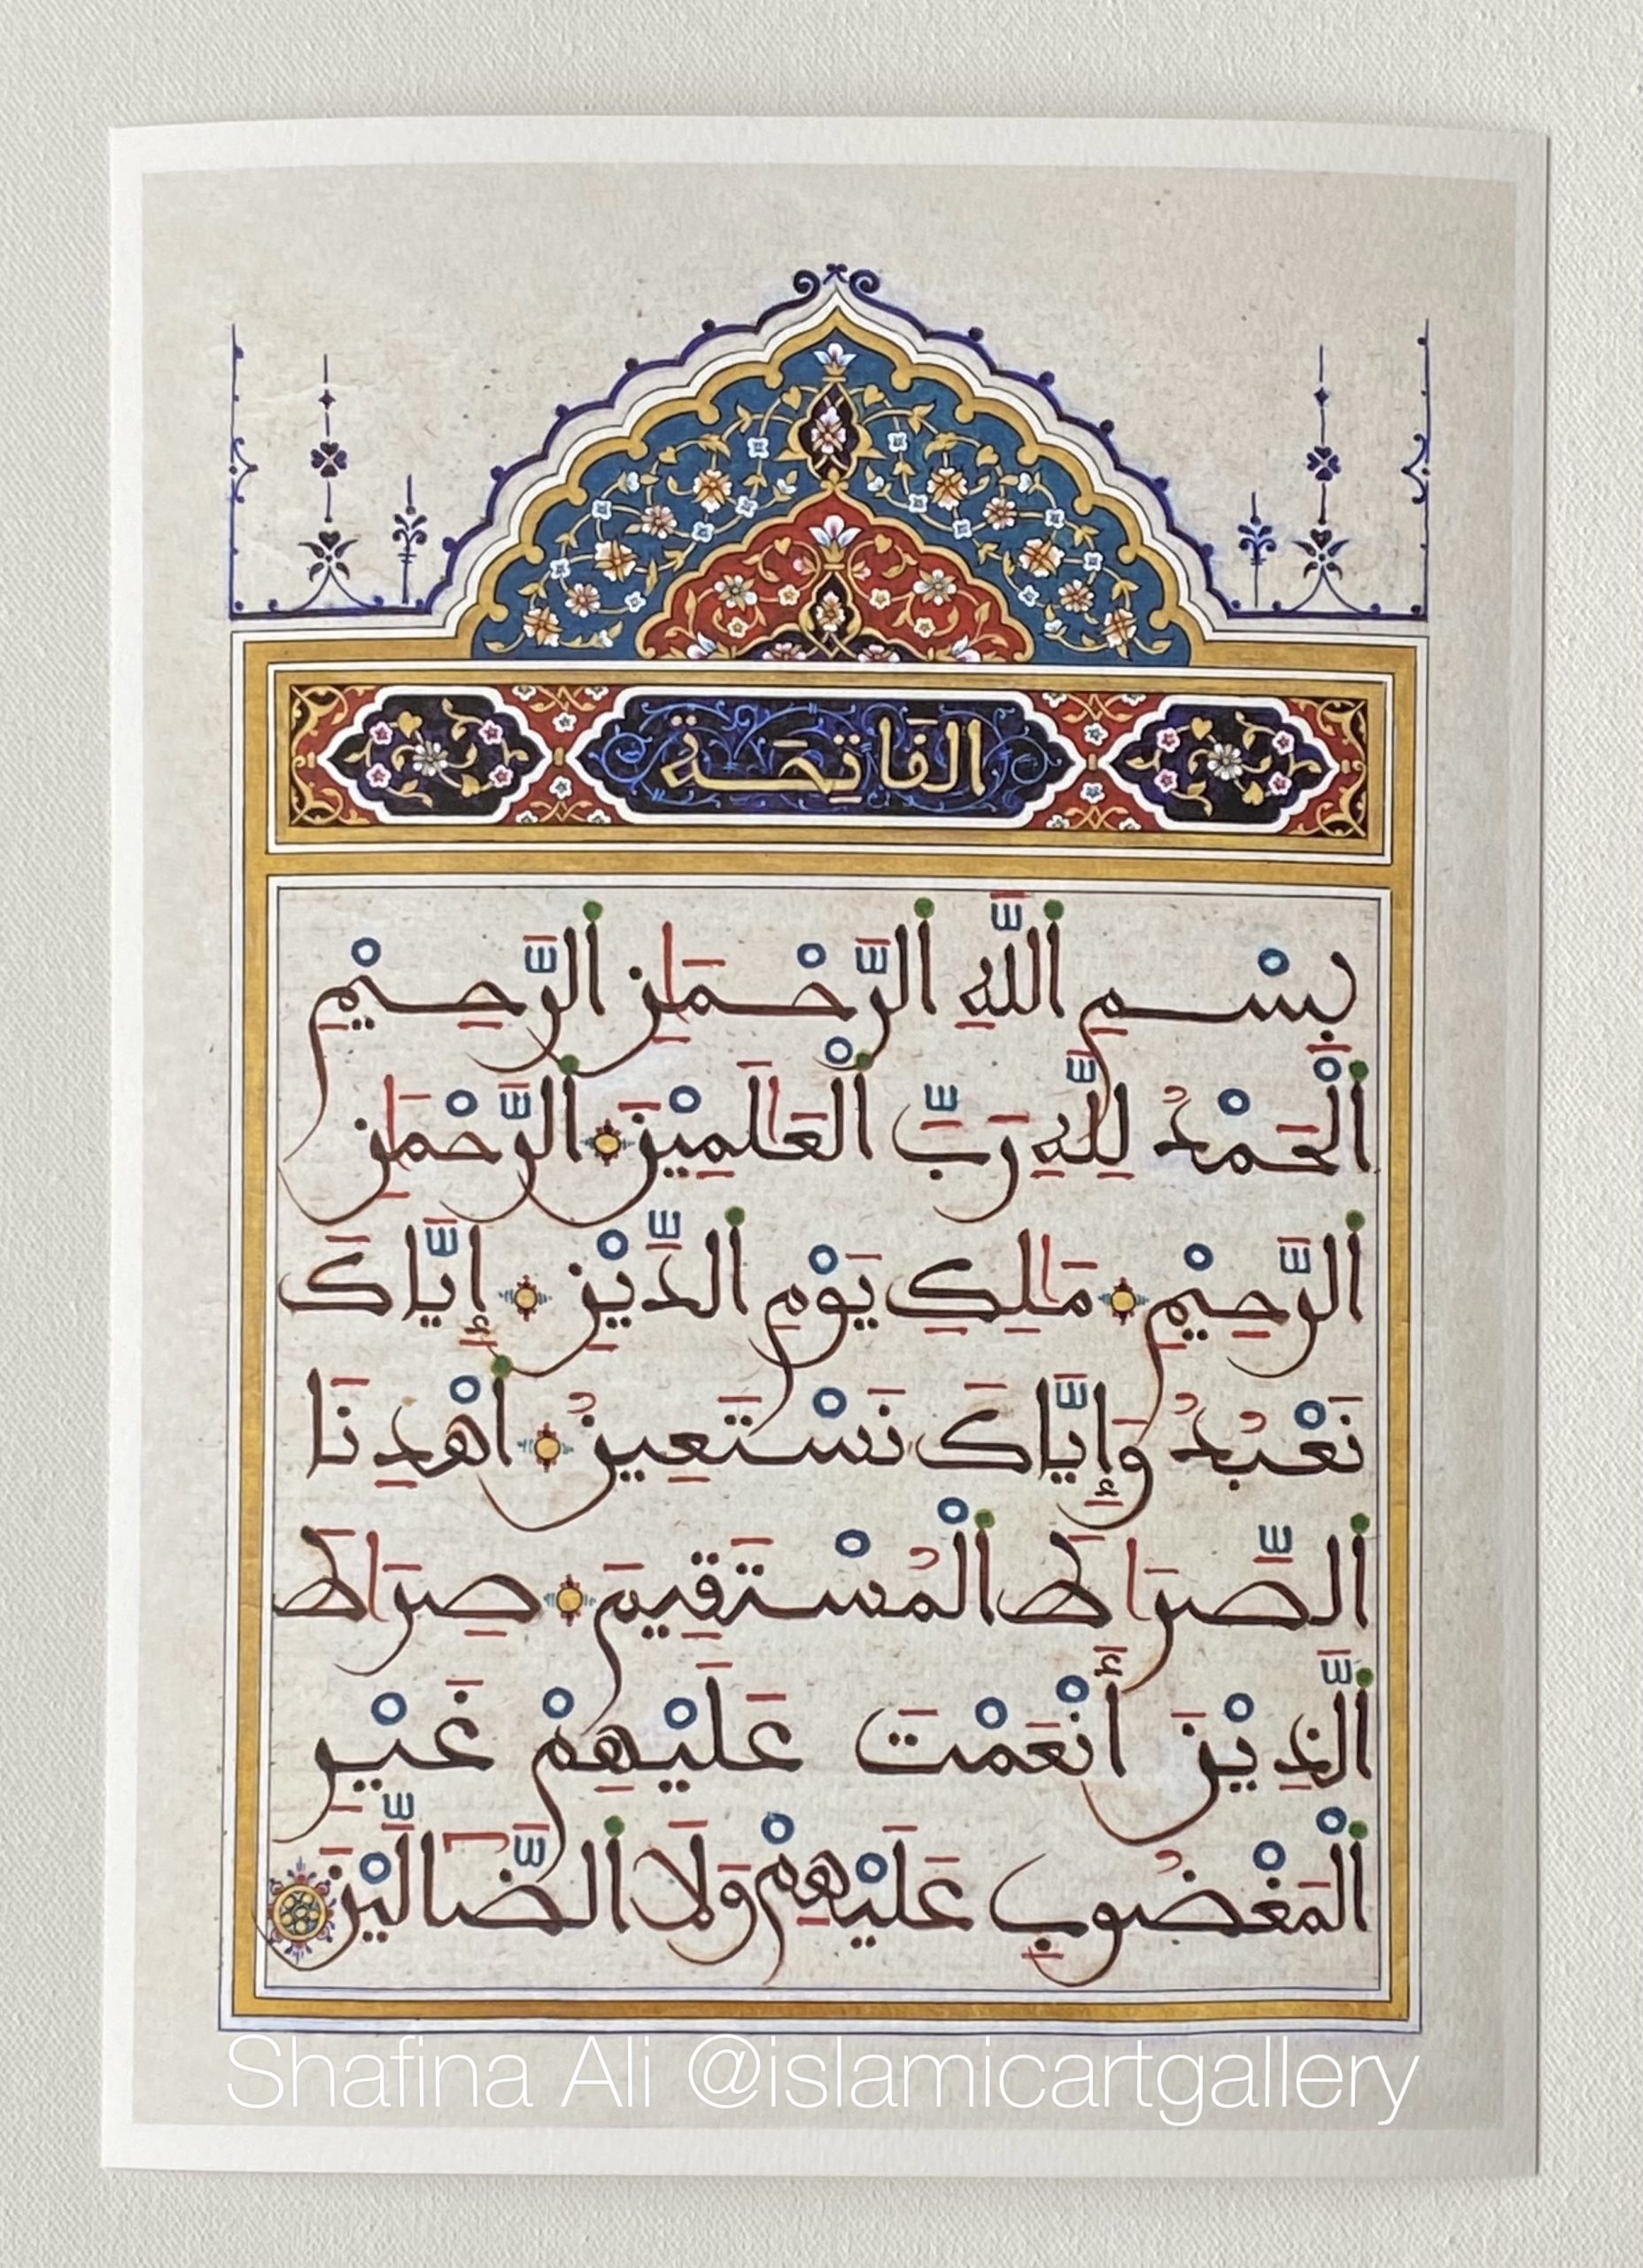 الفَاتِحَة
بِسْمِ اللَّهِ الرَّحْمَٰنِ الرَّحِيْمِ
اَلْحَمْدُ لِلَّهِ رَبِّ الْعَٰلَمِيْنَ الرَّحْمَٰنِ
الرَّحِيْمِ مَٰلِكِ يَوْمِ الدِّيْنِ إِيَّاكَ
نَعْبُدُ وَإِيَّاكَ نَسْتَعِينُ اهْدِنَا
الصِّرَاطَ الْمُسْتَقِيمَ صِرَاطَ
الَّذِيْنَ أَنْعَمْتَ عَلَيْهِمْ غَيْرِ
الْمَغْضُوبِ عَلَيْهِمْ وَلَا الضَّالِّيْنَ
Shafina Ali @islamicartgallery